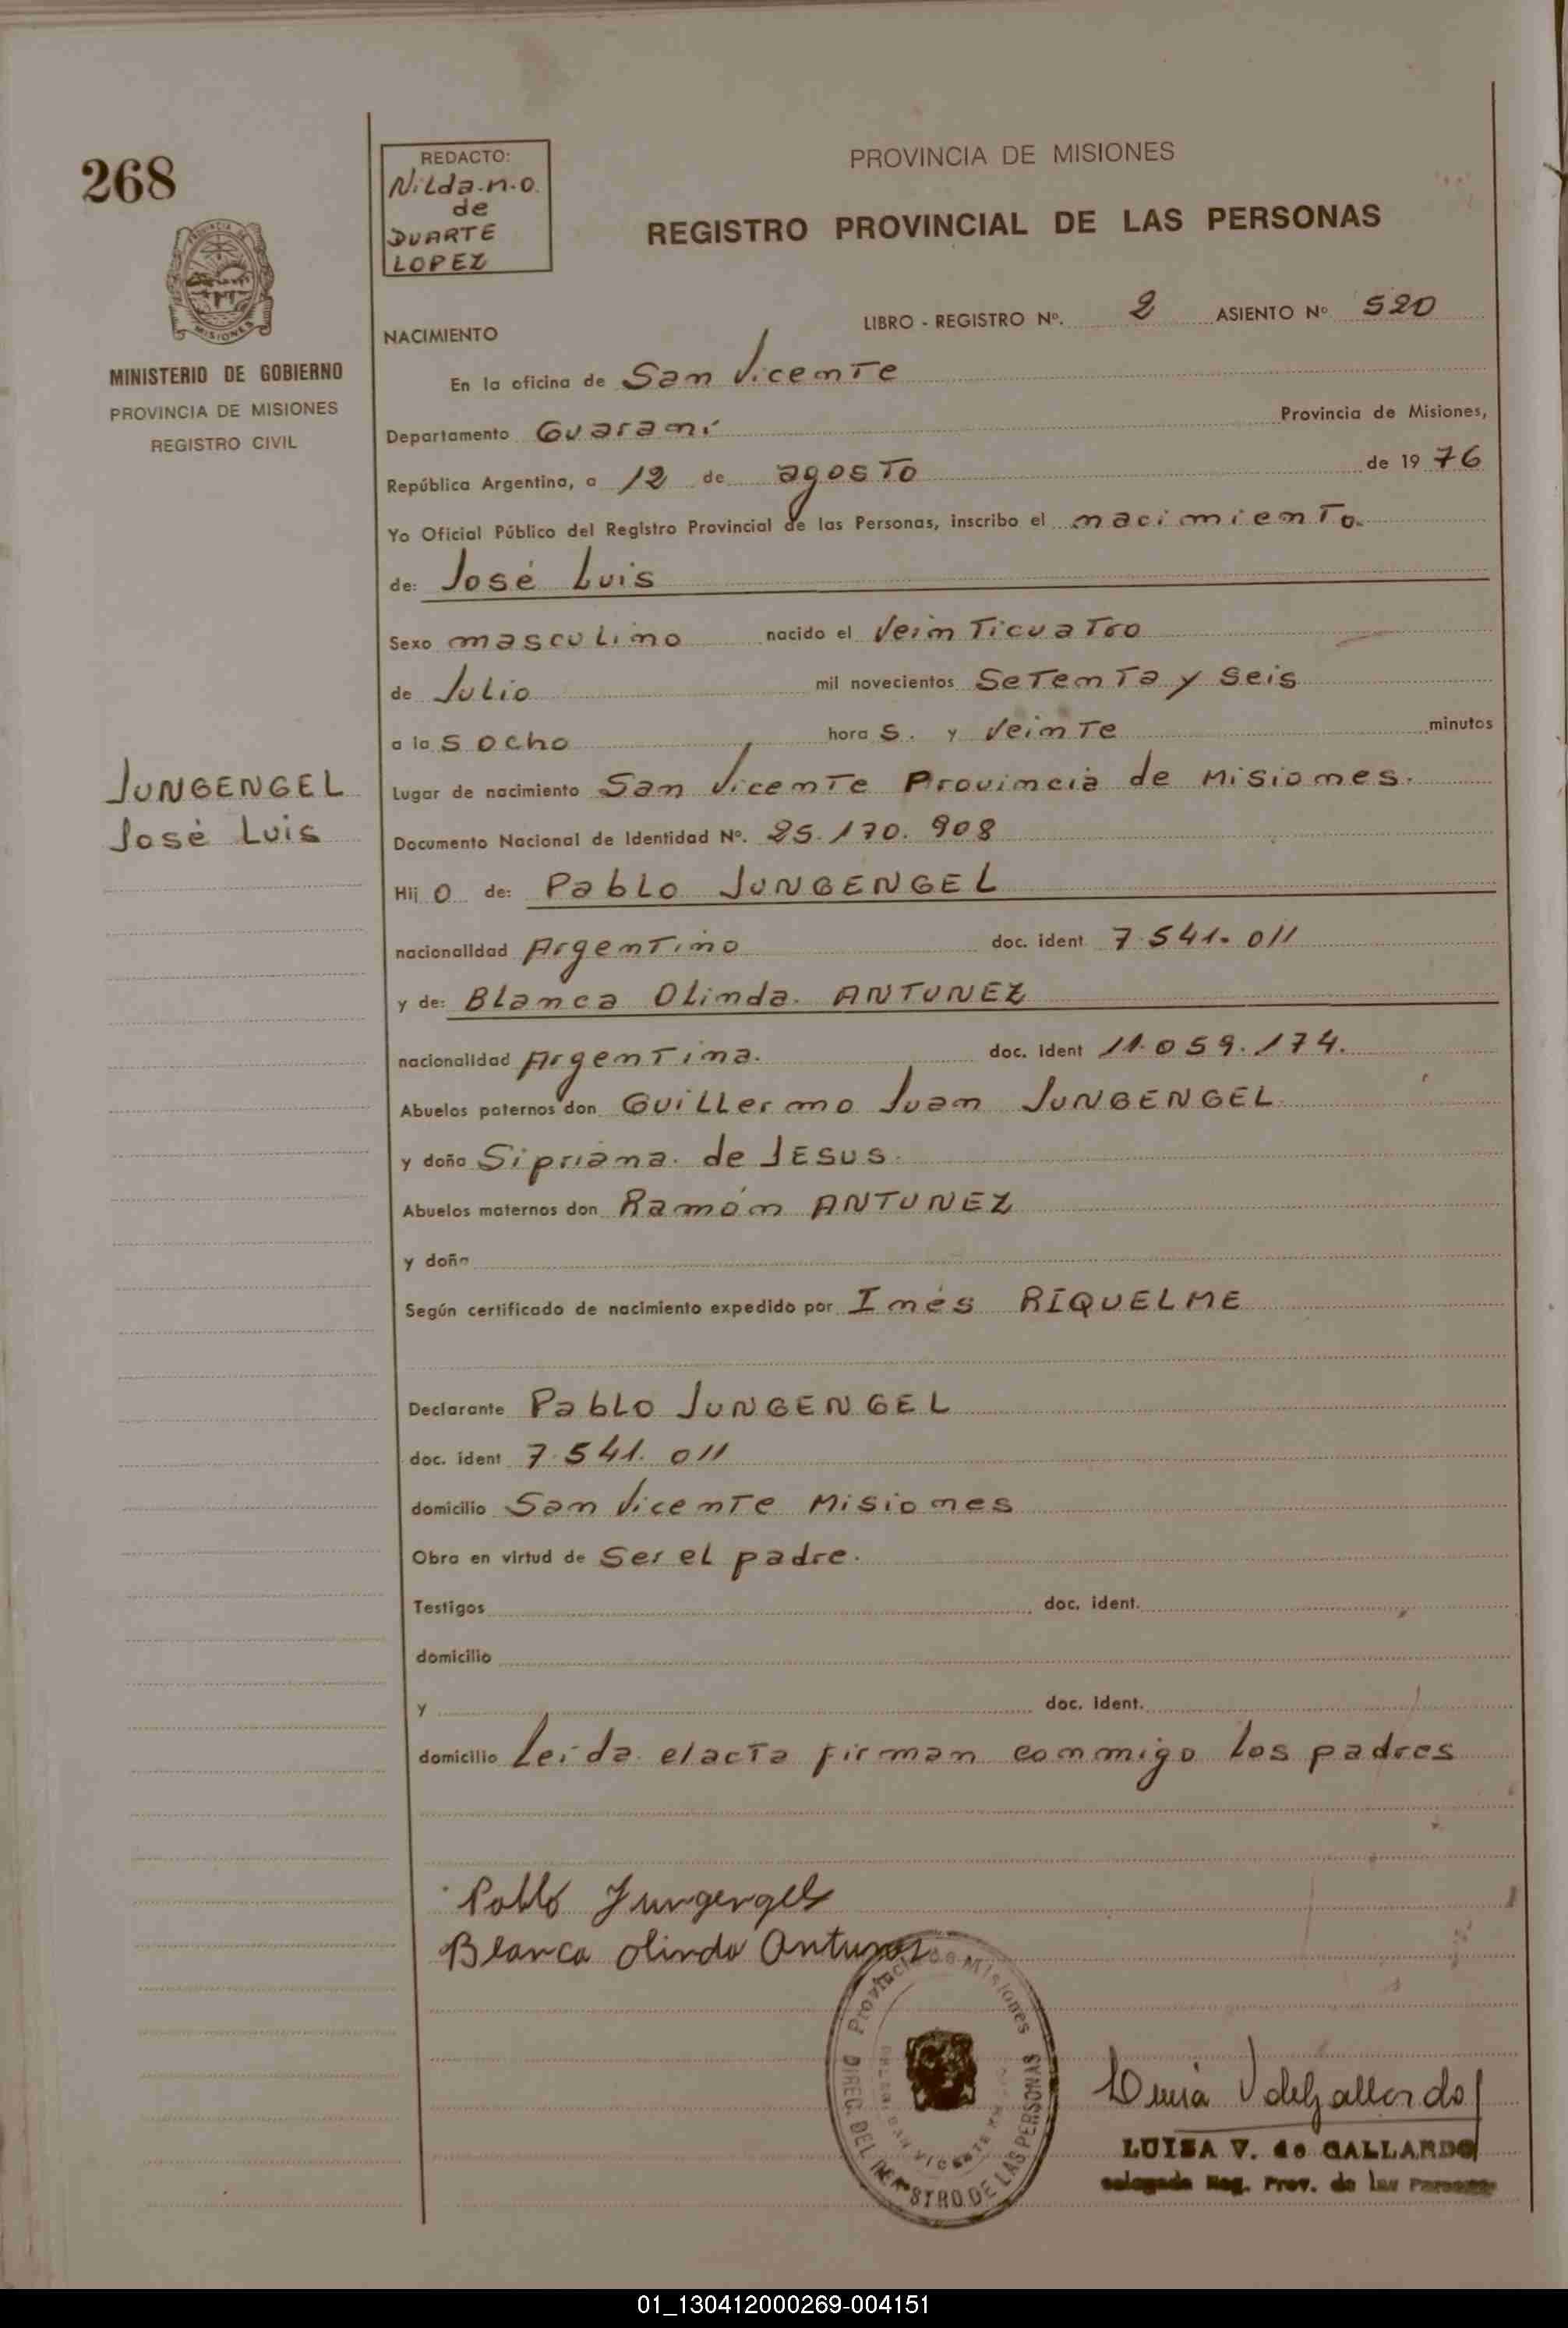 268
REDACTO:
Nilda.n.o.
de
DUARTE
LOPEZ
PROVINCIA DE MISIONES
REGISTRO PROVINCIAL DE LAS PERSONAS
MISIONES
MINISTERIO DE GOBIERNO
PROVINCIA DE MISIONES
REGISTRO CIVIL
LIBRO - REGISTRO Nº. 2 ASIENTO Nº 520
NACIMIENTO
En la oficina de San Vicente
Departamento Guaraní Provincia de Misiones,
República Argentina, a 12 de agosto de 19 76
Yo Oficial Público del Registro Provincial de las Personas, inscribo el nacimiento.
de: José Luis
Sexo masculino nacido el Veinticuatro
de Julio mil novecientos Setenta y seis
a la s ocho hora s. y Veinte minutos
JUNGENGEL
José Luis
Lugar de nacimiento San Vicente Provincia de Misiones.
Documento Nacional de Identidad Nº. 25.170.908
Hij o de: Pablo JUNGENGEL
nacionalidad Argentino doc. ident 7.541.011
y de: Blanca Olinda. ANTUNEZ
nacionalidad Argentina. doc. ident 11.059.174.
Abuelos paternos don Guillermo Juan JUNGENGEL
y doña Sipriana. de JESUS.
Abuelos maternos don Ramón ANTUNEZ
y doña
Según certificado de nacimiento expedido por Inés RIQUELME
Declarante Pablo JUNGENGEL
doc. ident 7.541.011
domicilio San Vicente Misiones
Obra en virtud de Ser el padre.
Testigos doc. ident.
domicilio
y doc. ident.
domicilio Leída el acta firman conmigo los padres
Pablo Jungengel
Blanca olinda Antunez
Provincia de Misiones
DIREG. DEL REGISTRO DE LAS PERSONAS
SAN VICENTE
Luisa V de Gallardo
LUISA V. de GALLARDO
Delegada Reg. Prov. de las Personas
01_130412000269-004151